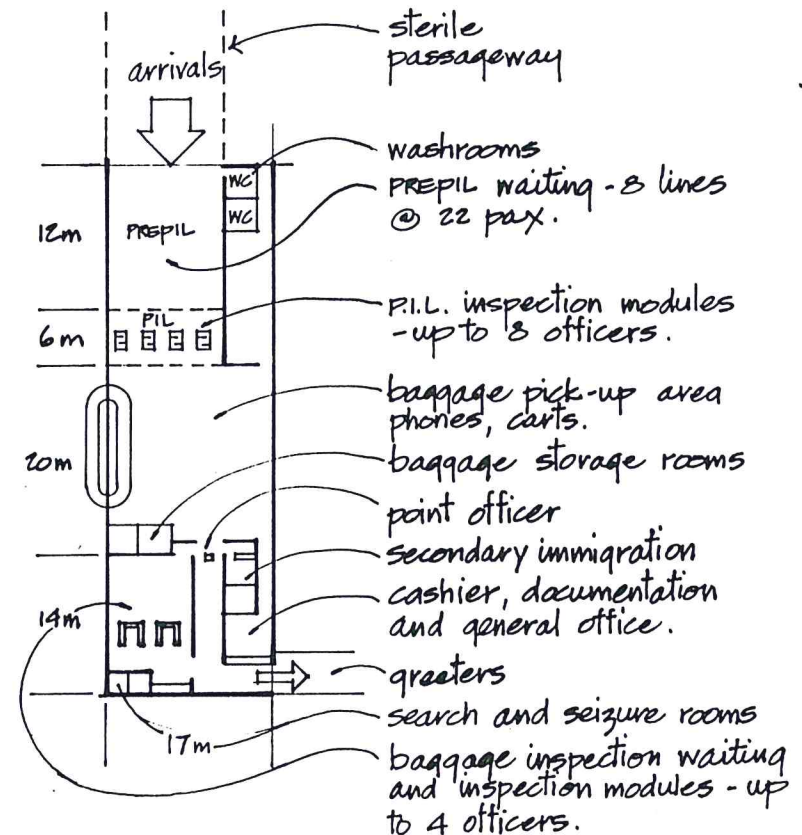 sterile
passageway
arrivals
washrooms
WC
WC
PREPIL waiting - 8 lines
@ 22 pax.
12m
PREPIL
P.I.L. inspection modules
- up to 8 officers.
PIL
6m
baggage pick-up area
phones, carts.
20m
baggage storage rooms
point officer
secondary immigration
cashier, documentation
and general office.
14m
greeters
search and seizure rooms
17m
baggage inspection waiting
and inspection modules - up
to 4 officers.